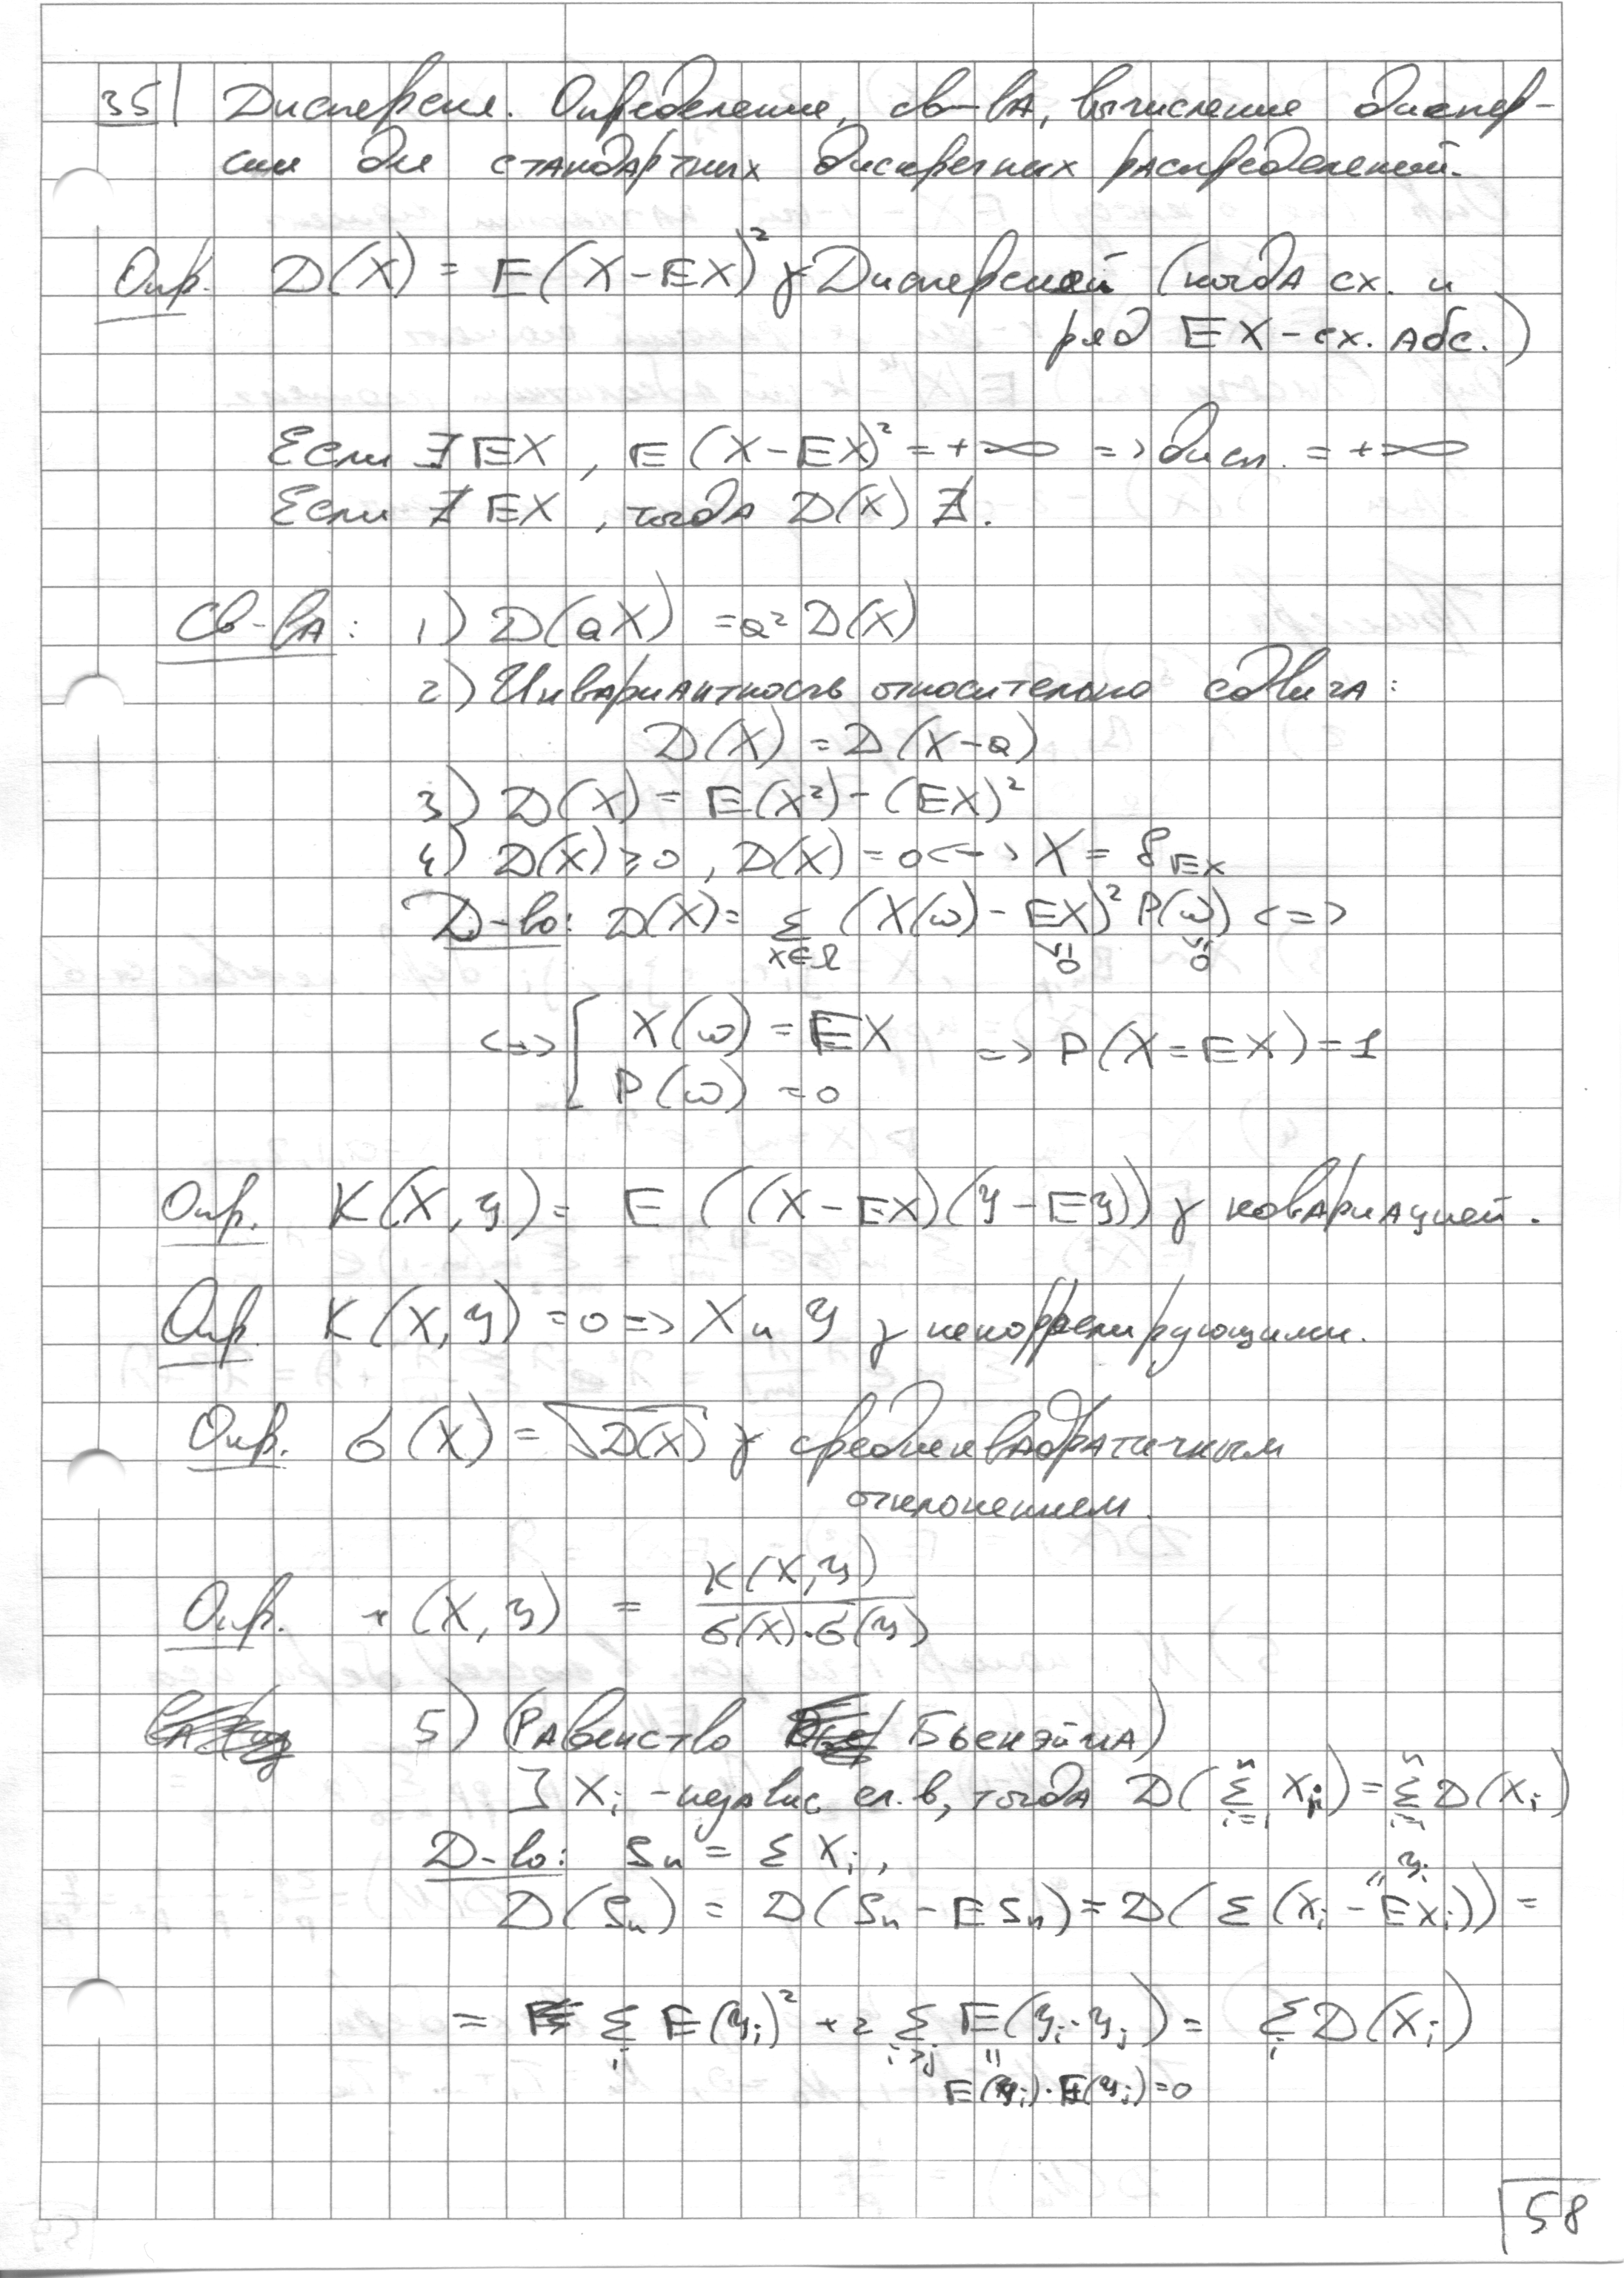 35| Дисперсия. Определение, св-ва, вычисление диспер-
сии для стандартных дискретных распределений.
Опр. D(X) = E(X-EX)² γ Дисперсией (когда сх. и
ряд EX - сх. абс.)
Если ∃ EX, E(X-EX)² = +∞ => дисп. = +∞
Если ∄ EX, тогда D(X) ∄.
Св-ва: 1) D(aX) = a² D(X)
2) Инвариантность относительно сдвига:
D(X) = D(X-a)
3) D(X) = E(X²) - (EX)²
4) D(X) ≥ 0, D(X) = 0 <-> X = δ_EX
Д-во: D(X) = Σ (X(ω) - EX)² P(ω) <=>
x∈Ω ≥0 ≥0
<=> [ X(ω) = EX => P(X = EX) = 1
P(ω) = 0
Опр. K(X, Y) = E((X-EX)(Y-EY)) γ ковариацией.
Опр. K(X, Y) = 0 => X и Y γ некоррелирующими.
Опр. σ(X) = √D(X) γ среднеквадратичным
отклонением.
Опр. r(X, Y) = K(X,Y) / σ(X)·σ(Y)
5) (Равенство Бьенэйма)
∃ Xi - независ сл. в, тогда D(Σⁿᵢ₌₁ Xi) = Σⁿᵢ₌₁ D(Xi)
Д-во: Sn = Σ Xi,
D(Sn) = D(Sn - ESn) = D(Σ (Xi - EXi)) =
" Yi
= Σᵢ E(Yi)² + 2 Σ E(Yi·Yj) = Σᵢ D(Xi)
i>j "
E(Yi)·E(Yj) = 0
58